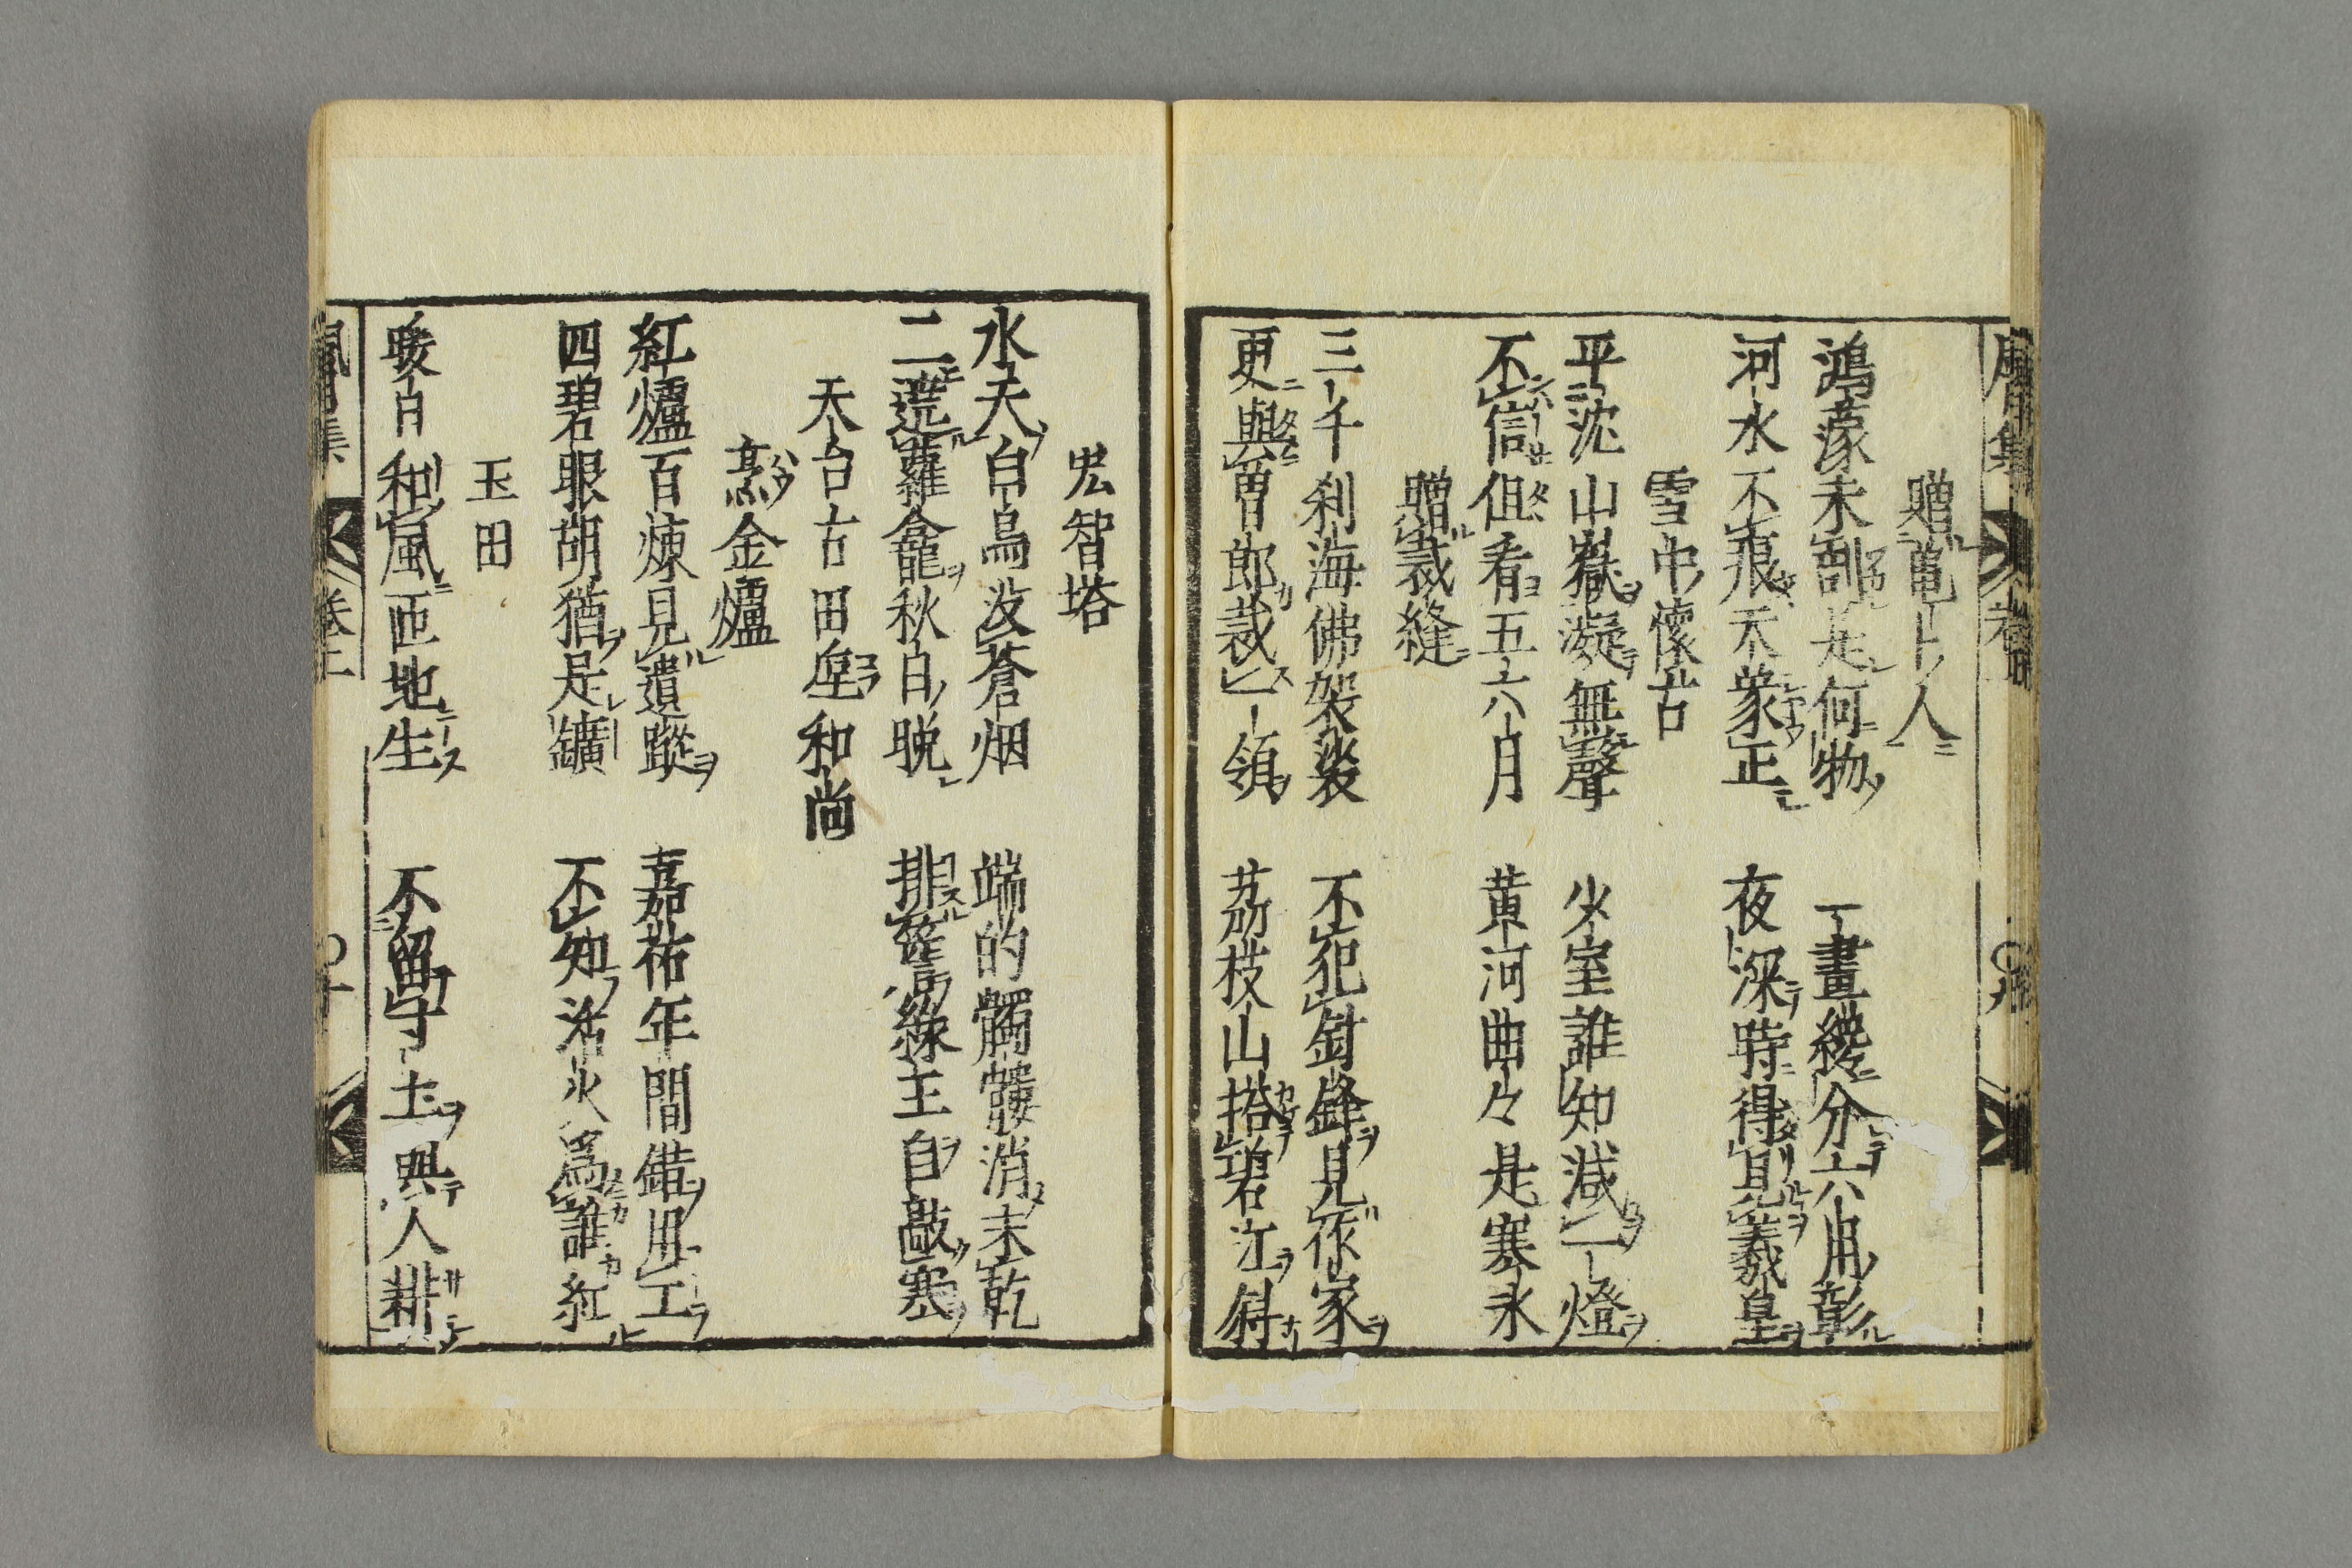 贈亀卜人
鴻濛未剖是何物　一畫纔分六用彰
河水不痕天象正　夜深時得見羲皇
雪中懷古
平沈山嶽凝無聲　少室誰知滅一燈
不信但看五六月　黄河曲々是寒氷
贈裁縫
三千刹海佛袈裟　不犯針鋒見作家
更與曽郎裁一領　茘枝山搭碧江斜
宏智塔
水天白鳥没蒼烟　端的髑髏消未乾
二遶蘿龕秋白晩　排篭緣主自敲寒
天台古田垕和尚
烹金爐
紅爐百煉見遺蹤　嘉祐年間錯用工
四碧眼胡猶是鑛　不知活火為誰紅
玉田
暖日和風匝地生　不留寸土與人耕